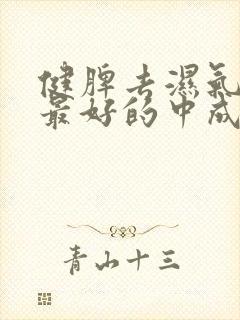 健脾去濕氣
最好的中成
青山十三